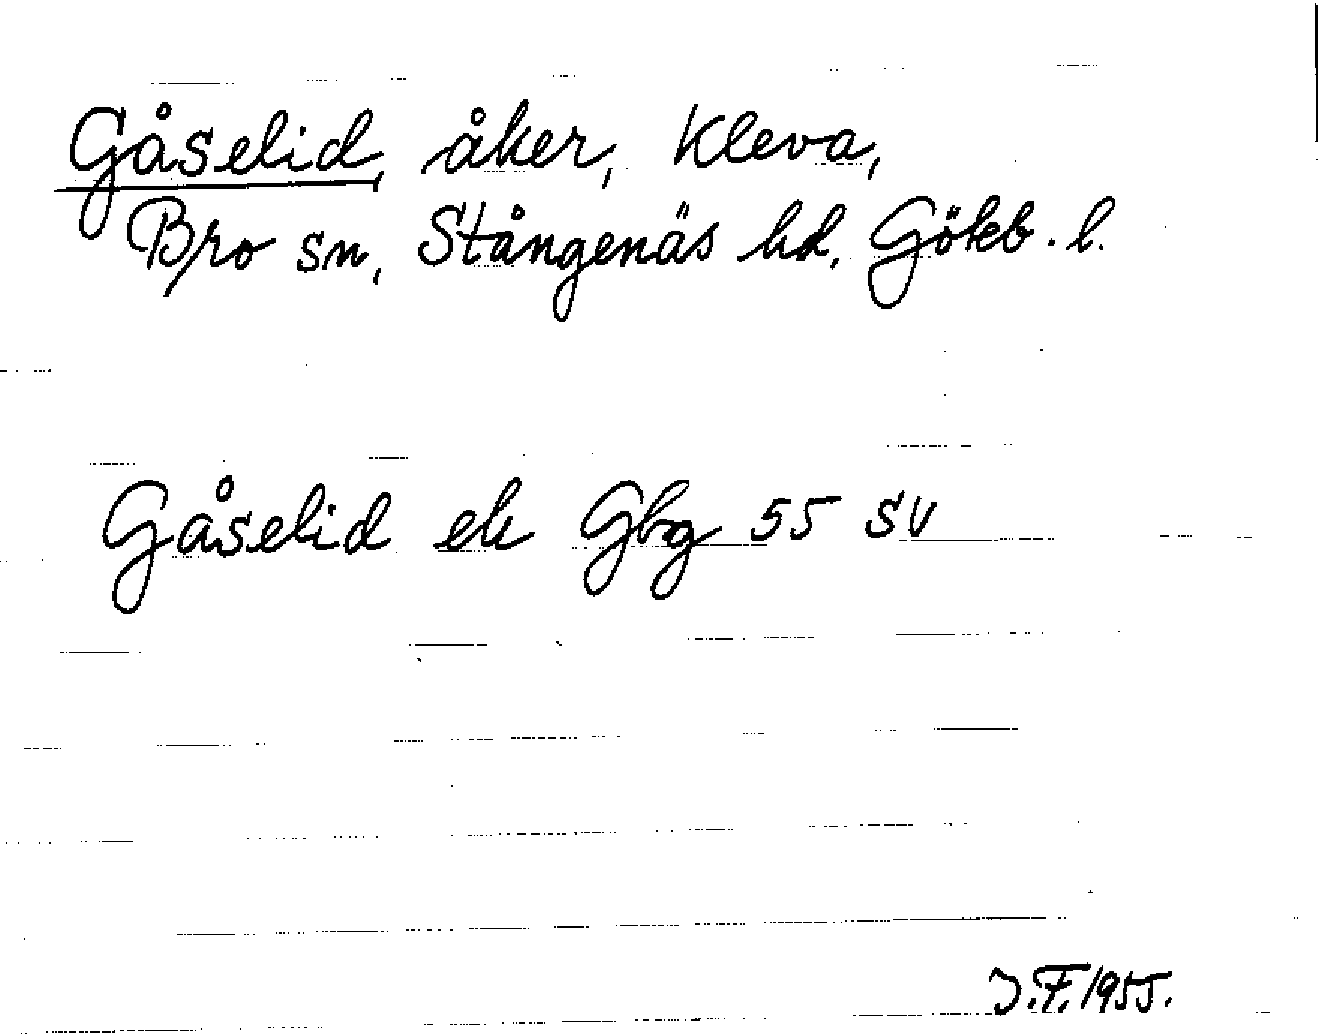 Gåselid, åker, Kleva,
Bro sn, Stångenäs hd, Gökb. l.
Gåselid ek Gbg 55 SV
J.F. 1955.